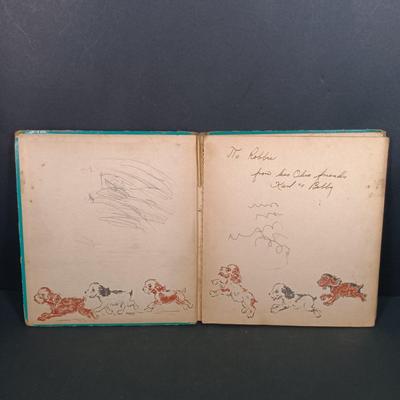 To Robbie
from his Ohio friends
Karl & Bobby